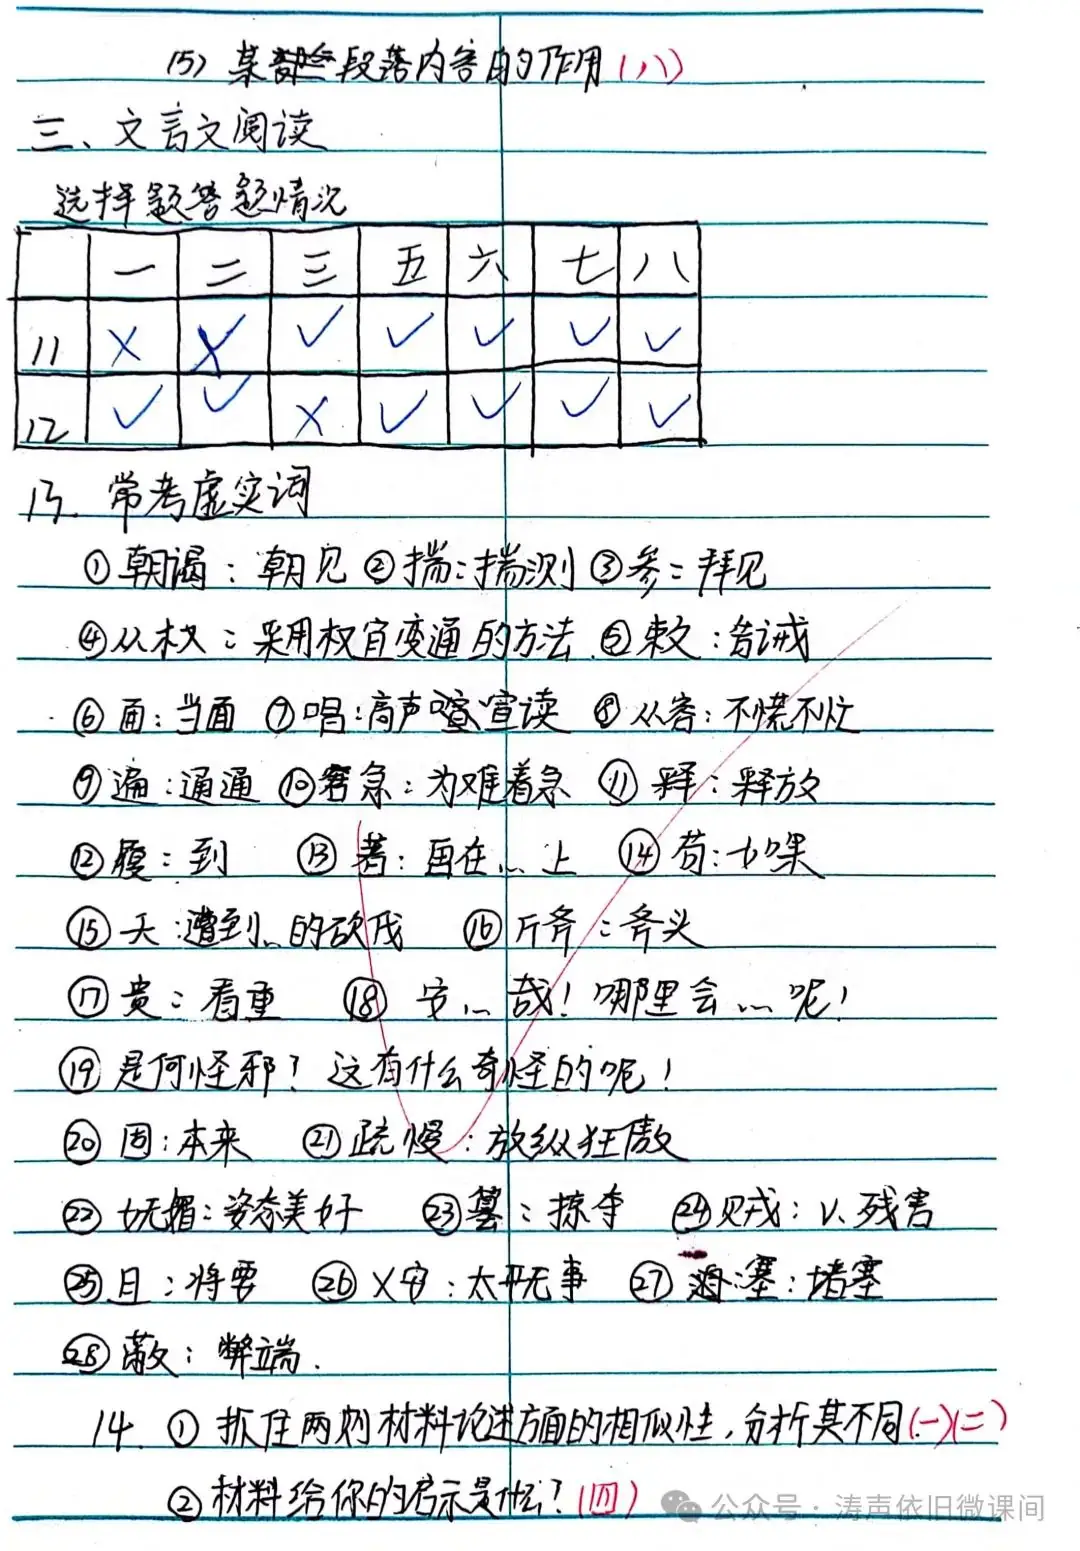 (5) 某些段落内容的作用(八)
三、文言文阅读
选择题答题情况
一 二 三 五 六 七 八
11 × × ✓ ✓ ✓ ✓ ✓
12 ✓ ✓ × ✓ ✓ ✓ ✓
13. 常考虚实词
①朝谒：朝见 ②揣：揣测 ③参：拜见
④从权：采用权宜变通的方法 ⑤敕：告诫
⑥面：当面 ⑦唱：高声宣读 ⑧从容：不慌不忙
⑨遍：通通 ⑩窘急：为难着急 ⑪释：释放
⑫履：到 ⑬著：画在…上 ⑭苟：如果
⑮夭：遭到…的砍伐 ⑯斤斧：斧头
⑰贵：看重 ⑱安…哉！哪里会…呢！
⑲是何怪邪？这有什么奇怪的呢！
⑳固：本来 ㉑疏慢：放纵狂傲
㉒妩媚：姿态美好 ㉓ ：掠夺 ㉔贼戎：v.残害
㉕且：将要 ㉖乂安：太平无事 ㉗塞：堵塞
㉘蔽：弊端.
14. ①抓住两则材料论述方面的相似性，分析其不同(一)(二)
②材料给你的启示是什么？(四)
公众号·涛声依旧微课间